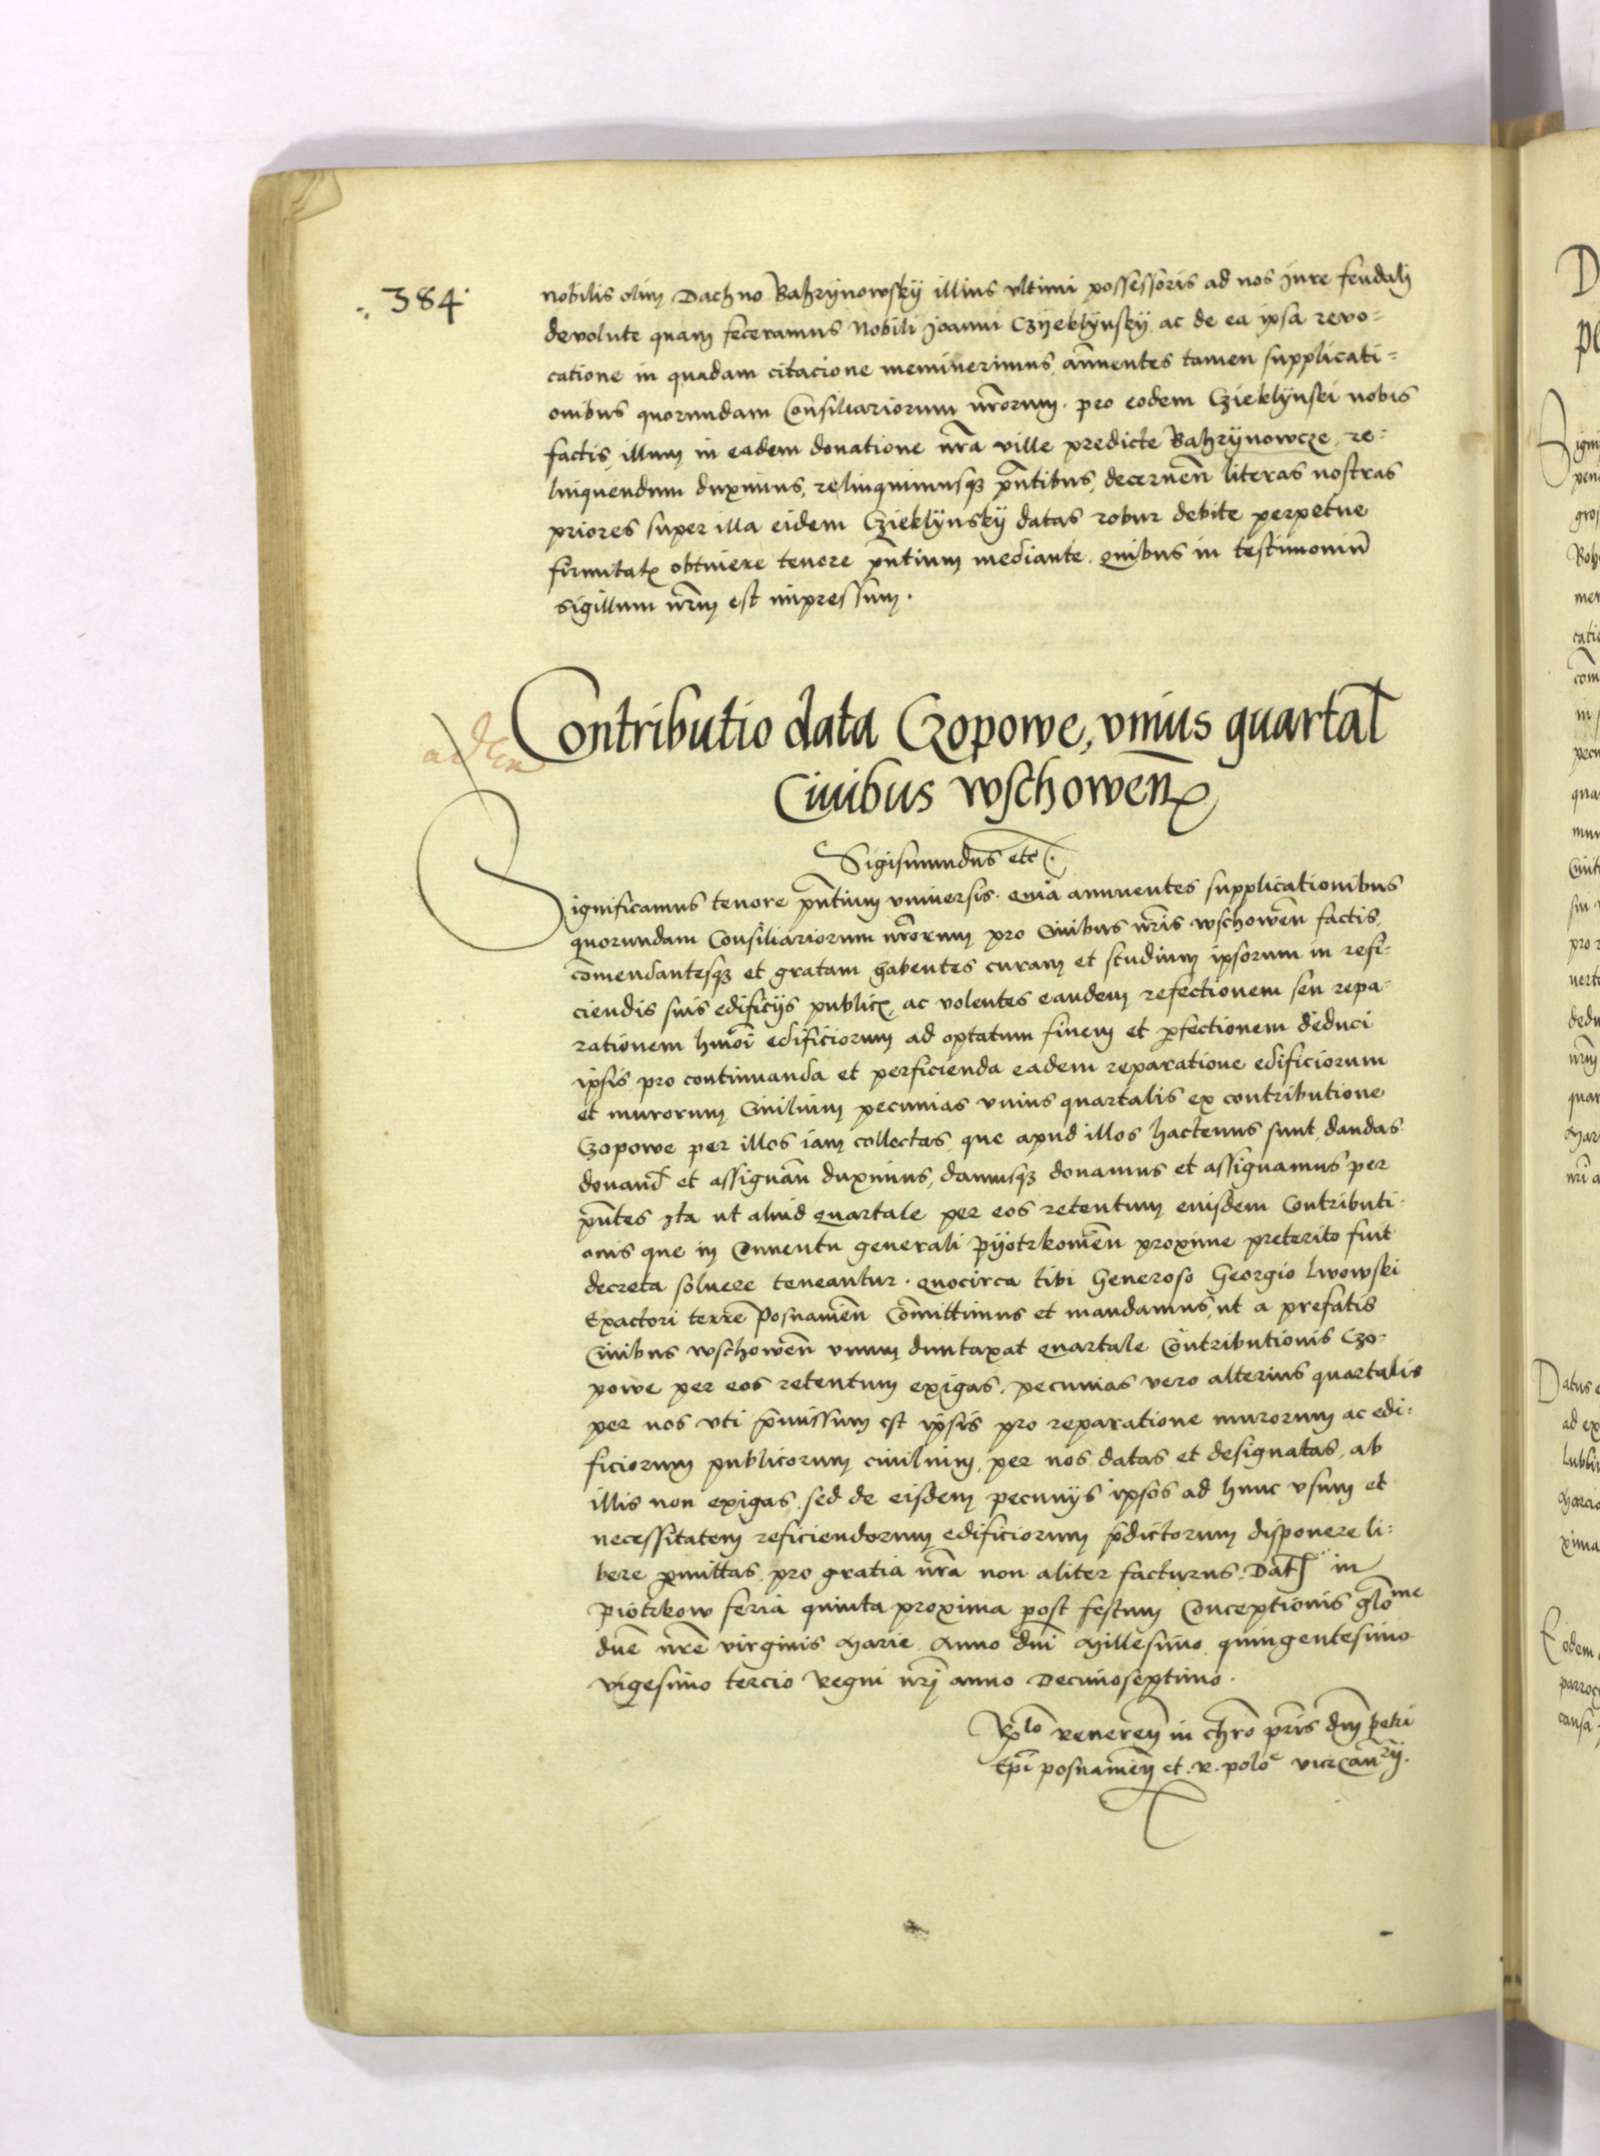 384
nobilis olim Dachno Bahrijnowskij illius vltimi possessoris ad nos Jure feudalj
devolute quam feceramus Nobili Joanni Czijeklijnskij, ac de ea ipsa revo=
catione in quadam citacione meminerimus, an̄uentes tamen supplicati=
onibus quorundam Consiliariorum nr̄orum. pro eodem Czieklijnski nobis
factis, illum in eadem donatione nr̄a ville predicte Bahrijnowcze, re=
linquendum duximus, relinquimusqꝫ pn̄tibus, decernen̄ literas nostras
priores super illa eidem Czieklijnskij datas robur debite perpetue
firmitatꝭ obtinere tenore pn̄tium mediante. quibus in testimoniu̅
sigillum nr̄m est impressum.
Contributio data Czopowe, vnius quartal
Ciuibus wschowen̄
Sigismundus etc.
Significamus tenore pn̄tium vniuersis. quia annuentes supplicationibus
quorundam Consiliariorum nr̄orum pro Ciuibus nr̄is wschowen̄ factis,
com̄endantesqꝫ et gratam habentes curam et studium ipsorum in refi=
ciendis suis edificijs publicꝭ, ac volentes eandem refectionem seu repa=
rationem hmōi edificiorum ad optatum finem et ꝑfectionem deduci
ipsis pro continuanda et perficienda eadem reparatione edificiorum
et murorum Ciuilium pecunias vnius quartalis ex contributione
Czopowe per illos iam collectas, que apud illos hactenus sunt, dandas
donand et assignan̄ duximus, damusqꝫ donamus et assignamus per
pn̄tes Ita ut aliud quartale per eos retentum eiusdem Contributi=
onis que in Conuentu generali pijotrkowien̄ proxime preterito fuit
decreta soluere teneantur. quocirca tibi Generoso Georgio Lwowski
Exactori terre Posnanien̄ Com̄ittimus et mandamus, ut a prefatis
Ciuibus wschowen̄ vnum duntaxat quartale Contributionis Czo=
powe per eos retentum exigas, pecunias vero alterius quartalis
per nos vti pr̄missum est ipsis pro reparatione murorum ac edi=
ficiorum publicorum ciuilium, per nos datas et designatas, ab
illis non exigas, sed de eisdem pecunijs ipsos ad hunc vsum et
necessitatem reficiendorum edificiorum pr̄dictorum disponere li=
bere ꝑmittas, pro gratia nr̄a non aliter facturus. Dat in
piotrkow feria quinta proxima post festum Conceptionis glōme
dn̄e nr̄e virginis Marie Anno dn̄i Millesimo quingentesimo
vigesimo tercio Regni nr̄j anno Decimoseptimo.
Rlo Reueren̄ in chr̄o pr̄is dn̄j petri
Ep̄i posnanien̄ et R. polo vicecan̄rij.